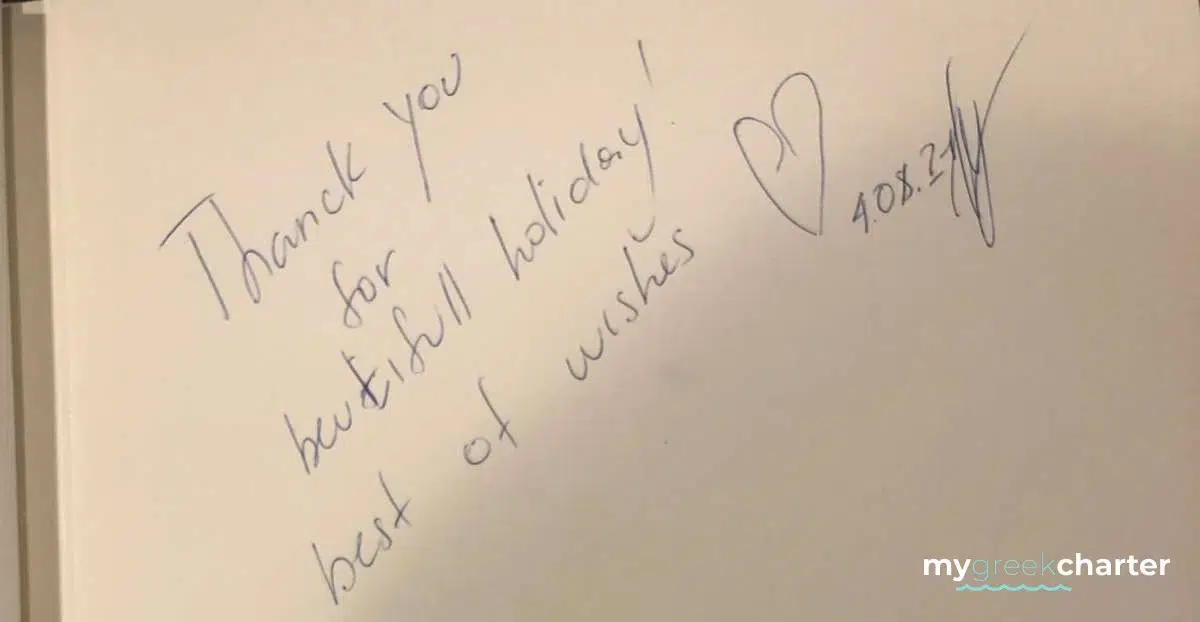 Thanck you
for
beutifull holiday!
best of wishes
4.08.21
mygreekcharter